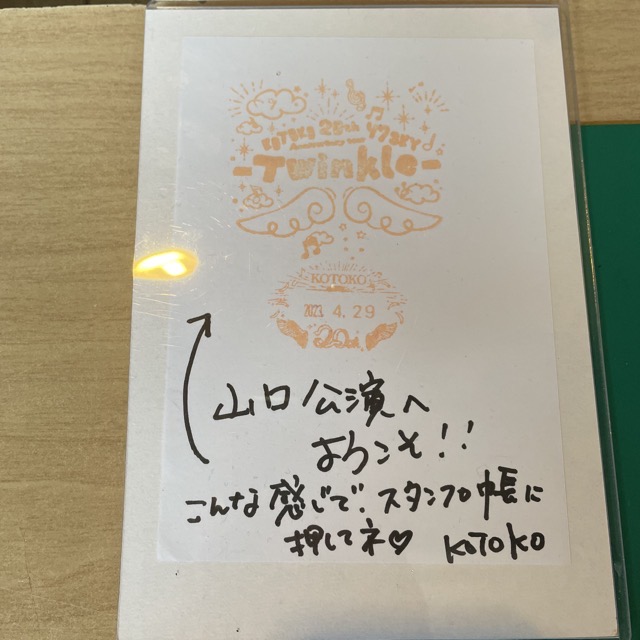 -Twinkle-
KOTOKO
2023. 4. 29
20th
山口公演へ
ようこそ!!
こんな感じで、スタンプ帳に
押してネ♡ KOTOKO